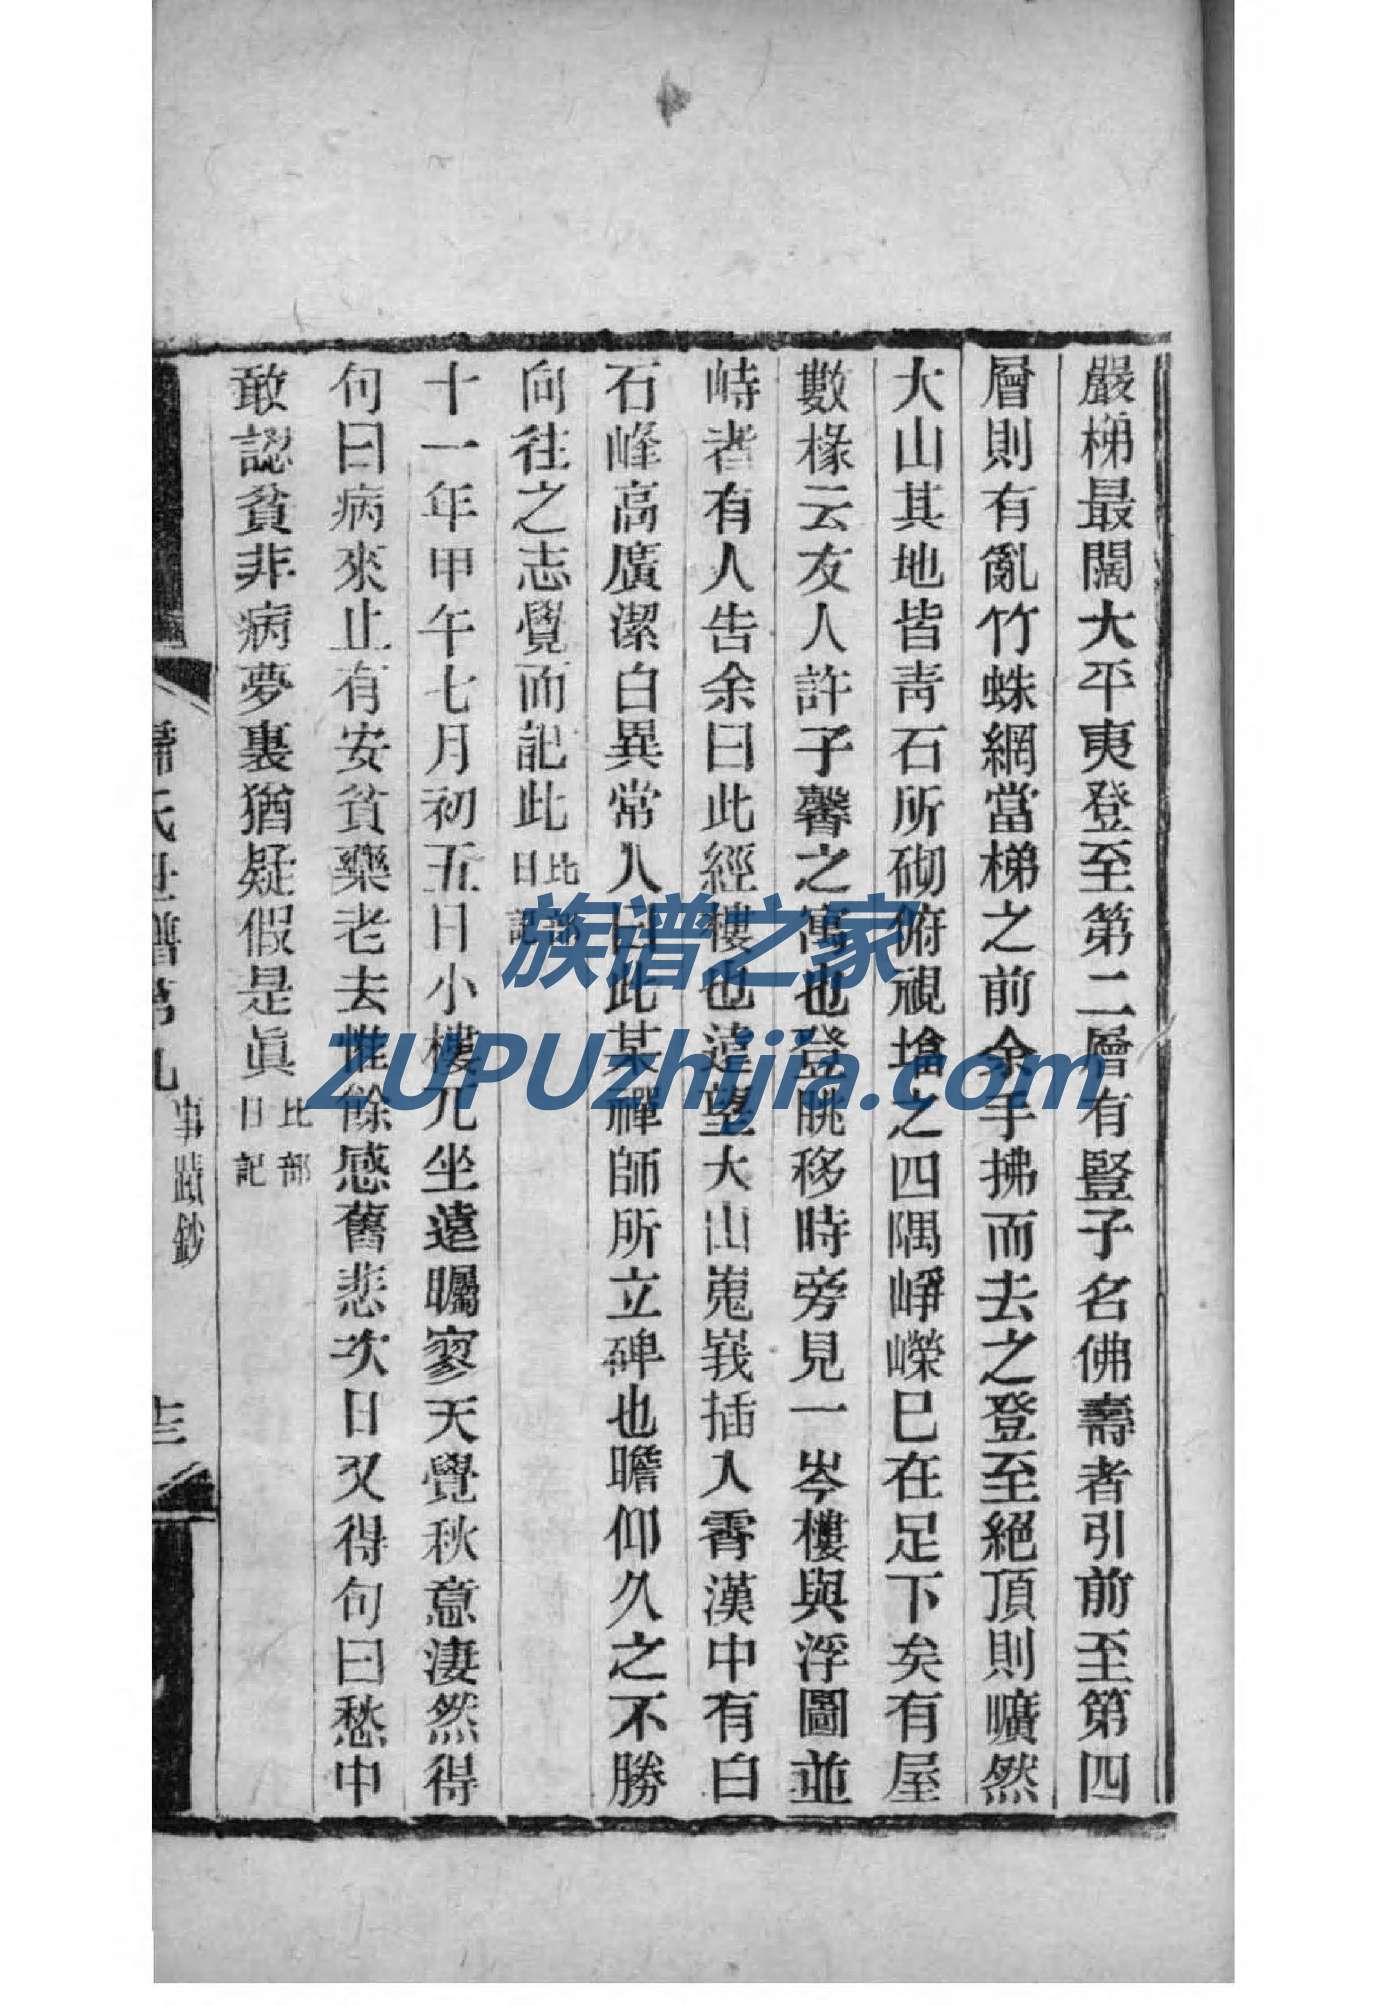 嚴梯最闊大平夷登至第二層有豎子名佛壽者引前至第四
層則有亂竹蛛網當梯之前余手拂而去之登至絕頂則曠然
大山其地皆青石所砌俯視墖之四隅崢嶸已在足下矣有屋
數椽云友人許子馨之寓也登眺移時旁見一岑樓與浮圖並
峙者有人告余曰此經樓也遠望大山嵬峩插入霄漢中有白
石峰高廣潔白異常人曰此某禪師所立碑也瞻仰久之不勝
向往之志覺而記此比部日記
十一年甲午七月初五日小樓兀坐遠矚寥天覺秋意淒然得
句曰病來止有安貧藥老去惟餘感舊悲次日又得句曰愁中
敢認貧非病夢裏猶疑假是眞比部日記
氏世譜第九 事蹟鈔 十三
族谱之家
ZUPUzhijia.com